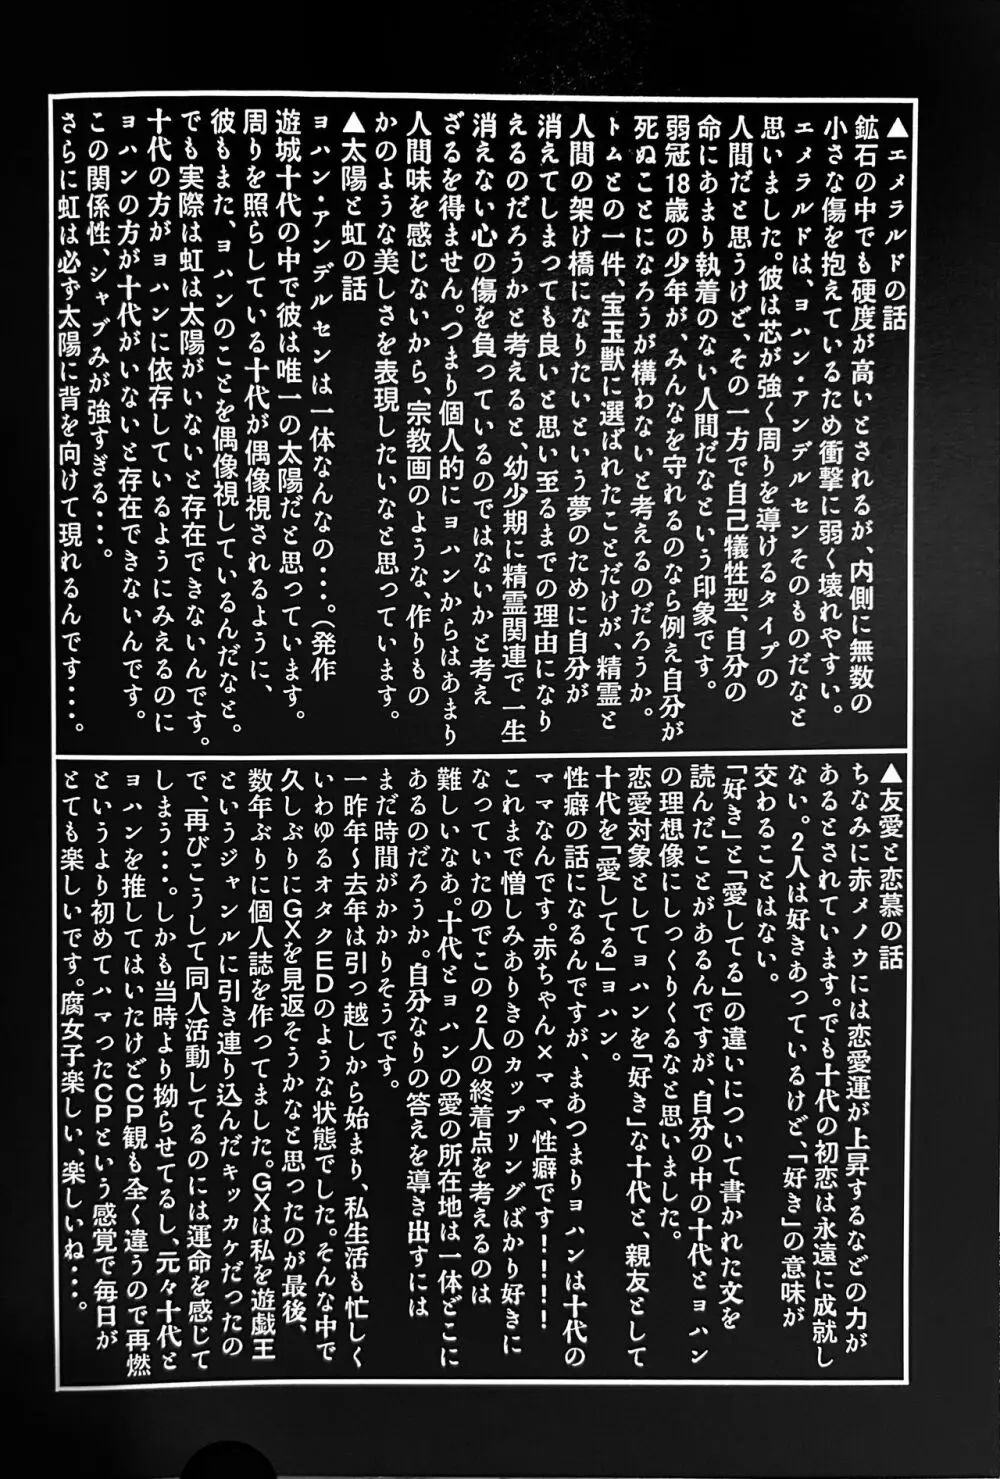 ▲エメラルドの話
鉱石の中でも硬度が高いとされるが、内側に無数の
小さな傷を抱えているため衝撃に弱く壊れやすい。
エメラルドは、ヨハン・アンデルセンそのものだなと
思いました。彼は芯が強く周りを導けるタイプの
人間だと思うけど、その一方で自己犠牲型、自分の
命にあまり執着のない人間だなという印象です。
弱冠18歳の少年が、みんなを守れるのなら例え自分が
死ぬことになろうが構わないと考えるのだろうか。
トムとの一件、宝玉獣に選ばれたことだけが、精霊と
人間の架け橋になりたいという夢のために自分が
消えてしまっても良いと思い至るまでの理由になり
えるのだろうかと考えると、幼少期に精霊関連で一生
消えない心の傷を負っているのではないかと考え
ざるを得ません。つまり個人的にヨハンからはあまり
人間味を感じないから、宗教画のような、作りもの
かのような美しさを表現したいなと思っています。
▲太陽と虹の話
ヨハン・アンデルセンは一体なんなの・・・。(発作
遊城十代の中で彼は唯一の太陽だと思っています。
周りを照らしている十代が偶像視されるように、
彼もまた、ヨハンのことを偶像視しているんだなと。
でも実際は虹は太陽がいないと存在できないんです。
十代の方がヨハンに依存しているようにみえるのに
ヨハンの方が十代がいないと存在できないんです。
この関係性、シャブみが強すぎる・・・。
さらに虹は必ず太陽に背を向けて現れるんです・・・。
▲友愛と恋慕の話
ちなみに赤メノウには恋愛運が上昇するなどの力が
あるとされています。でも十代の初恋は永遠に成就し
ない。2人は好きあっているけど、「好き」の意味が
交わることはない。
「好き」と「愛してる」の違いについて書かれた文を
読んだことがあるんですが、自分の中の十代とヨハン
の理想像にしっくりくるなと思いました。
恋愛対象としてヨハンを「好き」な十代と、親友として
十代を「愛してる」ヨハン。
性癖の話になるんですが、まあつまりヨハンは十代の
ママなんです。赤ちゃん×ママ、性癖です!!!!!
これまで憎しみありきのカップリングばかり好きに
なっていたのでこの2人の終着点を考えるのは
難しいなあ。十代とヨハンの愛の所在地は一体どこに
あるのだろうか。自分なりの答えを導き出すには
まだ時間がかかりそうです。
一昨年~去年は引っ越しから始まり、私生活も忙しく
いわゆるオタクEDのような状態でした。そんな中で
久しぶりにGXを見返そうかなと思ったのが最後、
数年ぶりに個人誌を作ってました。GXは私を遊戯王
というジャンルに引き連り込んだキッカケだったの
で、再びこうして同人活動してるのには運命を感じて
しまう・・・。しかも当時より拗らせてるし、元々十代と
ヨハンを推してはいたけどCP観も全く違うので再燃
というより初めてハマったCPという感覚で毎日が
とても楽しいです。腐女子楽しい、楽しいね・・・。